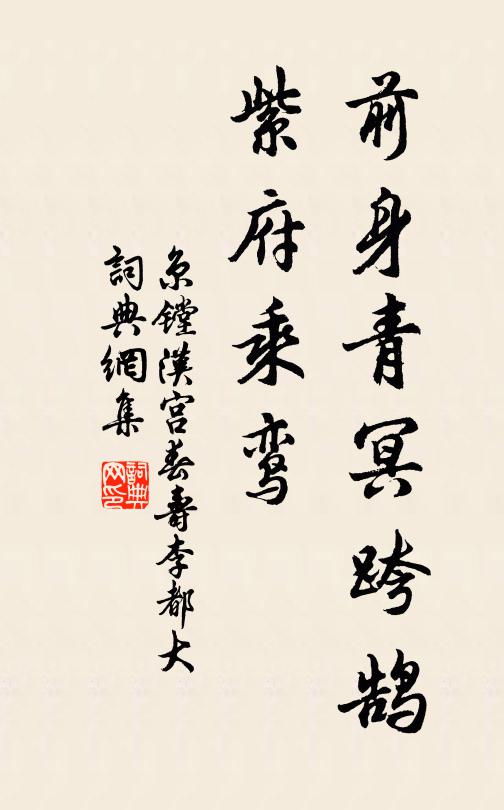 前身青冥跨鹄
紫府乘鸾
京镗汉宫春寿李都大
詞典網集
詞典网印